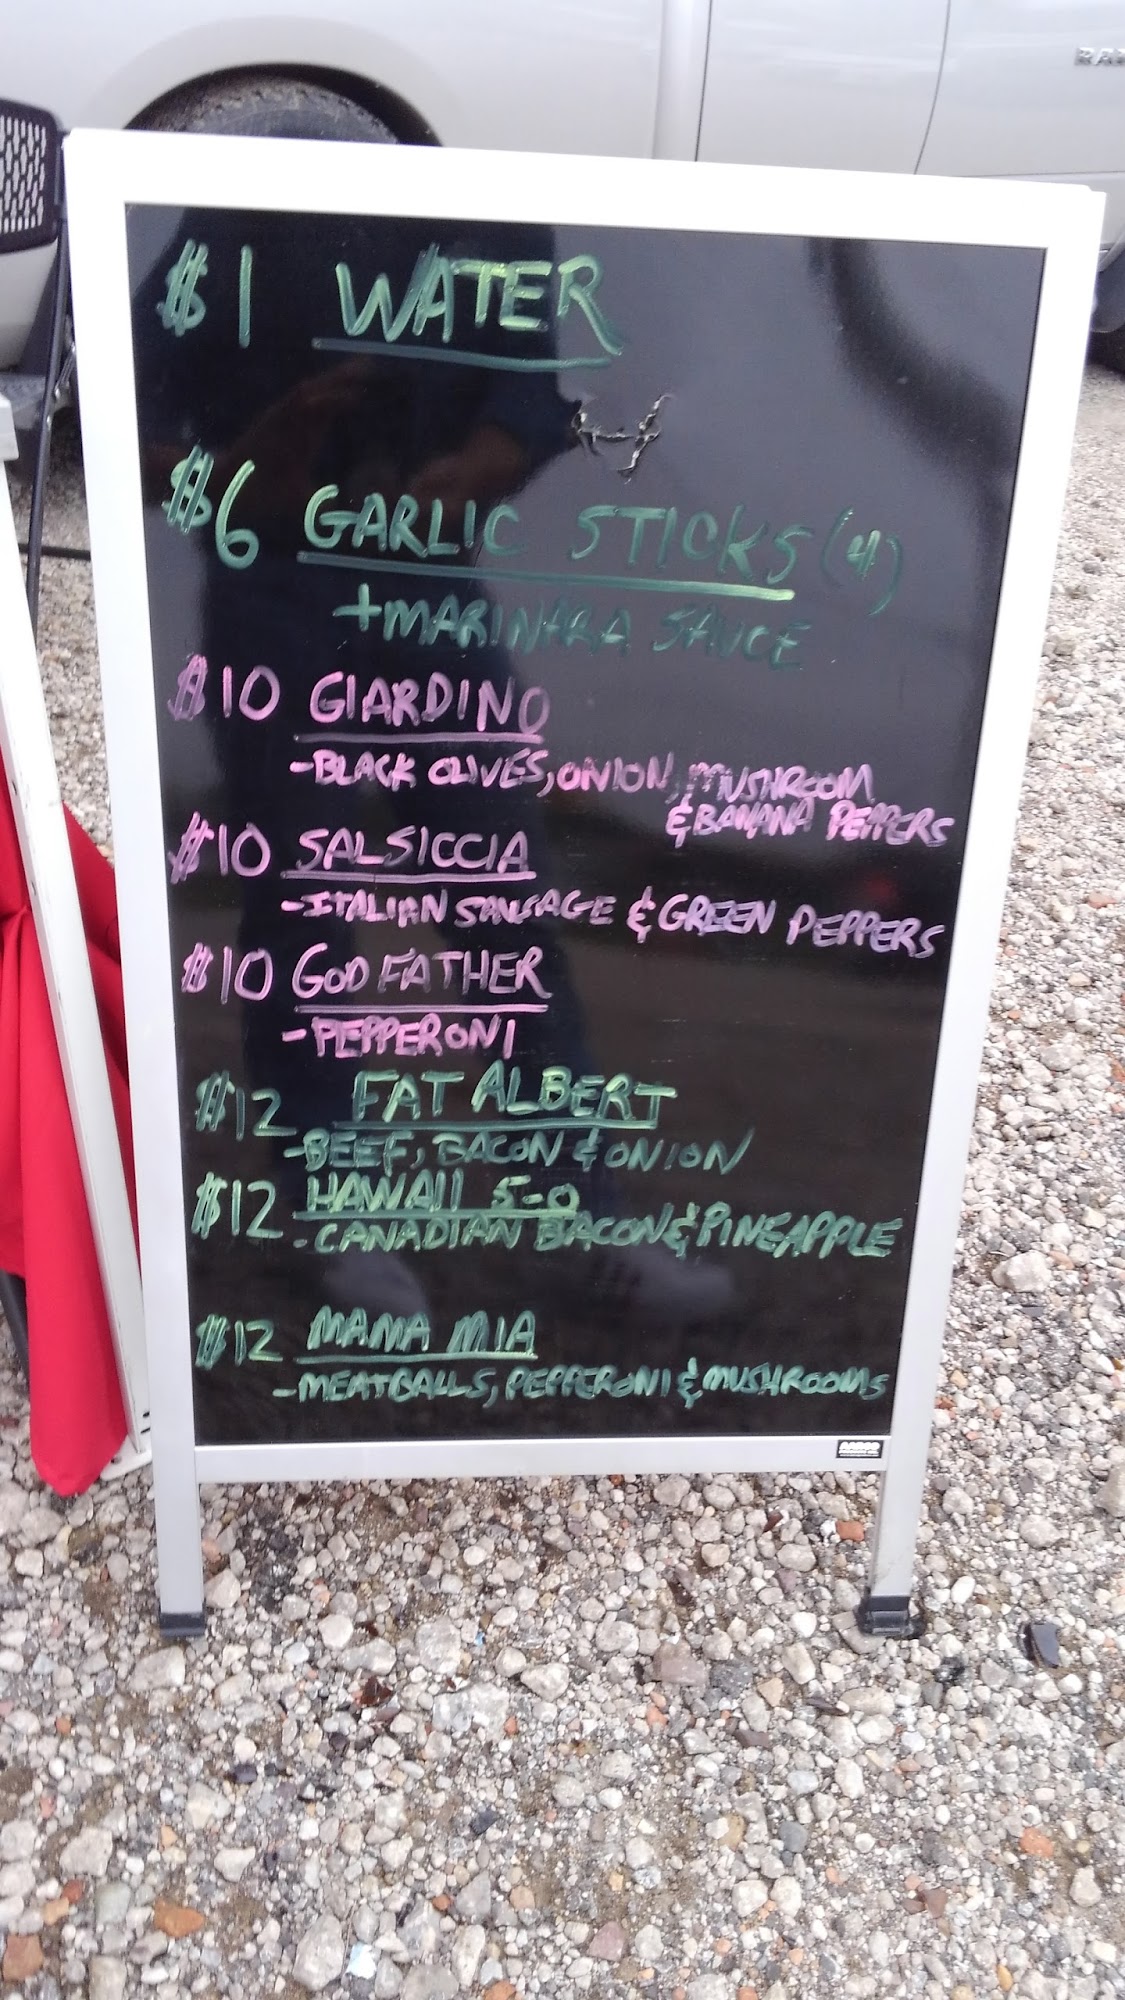 $1 WATER
$6 GARLIC STICKS (4)
+MARINARA SAUCE
$10 GIARDINO
-BLACK OLIVES, ONION, MUSHROOM
& BANANA PEPPERS
$10 SALSICCIA
-ITALIAN SAUSAGE & GREEN PEPPERS
$10 GODFATHER
-PEPPERONI
$12 FAT ALBERT
-BEEF, BACON & ONION
$12 HAWAII 5-0
-CANADIAN BACON & PINEAPPLE
$12 MAMA MIA
-MEATBALLS, PEPPERONI & MUSHROOMS